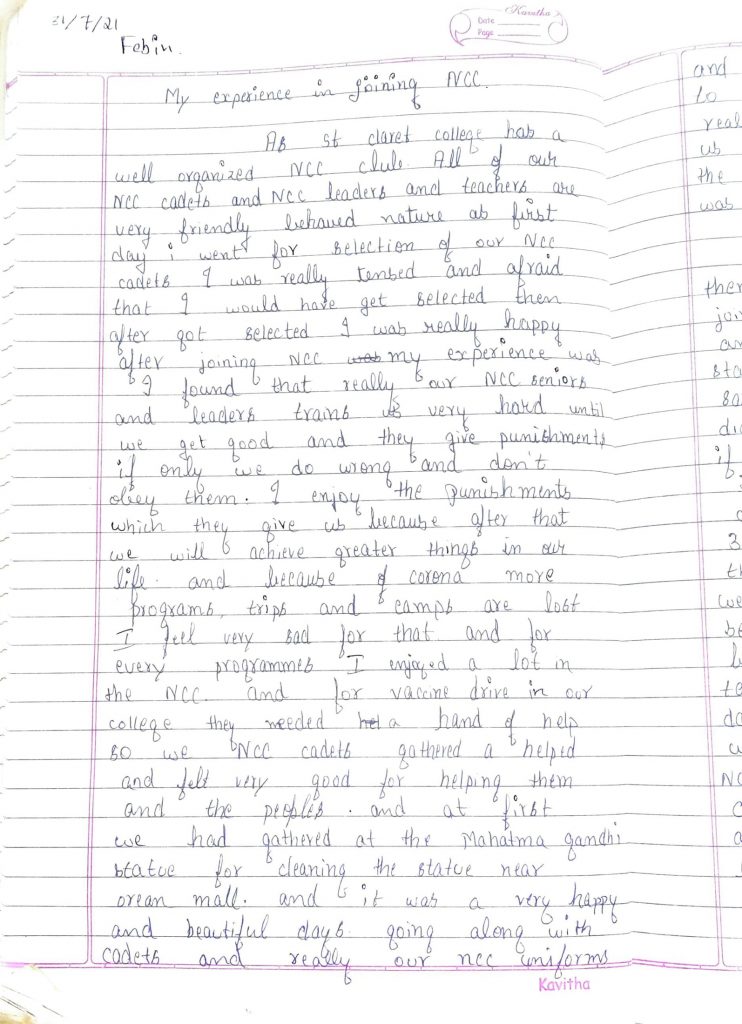 31/7/21
Febin.
Kavitha
Date
Page
My experience in joining NCC.
As st claret college has a
well organized NCC club. All of our
NCC cadets and NCC leaders and teachers are
very friendly behaved nature as first
day i went for selection of our NCC
cadets I was really tensed and afraid
that I would have get selected then
after got selected I was really happy
after joining NCC was my experience was
I found that really our NCC seniors
and leaders trains us very hard until
we get good and they give punishments
if only we do wrong and don't
obey them. I enjoy the punishments
which they give us because after that
we will achieve greater things in our
life. and because of corona more
programs, trips and camps are lost
I feel very sad for that and for
every programmes I enjoyed a lot in
the NCC. and for vaccine drive in our
college they needed hel a hand of help
so we NCC cadets gathered a helped
and felt very good for helping them
and the peoples. and at first
we had gathered at the Mahatma gandhi
statue for cleaning the statue near
orean mall. and it was a very happy
and beautiful days. going along with
cadets and really our ncc uniforms
Kavitha
and
to
real
us
the
was
ther
joi
an
sta
so
di
if
3
th
we
be
te
do
NC